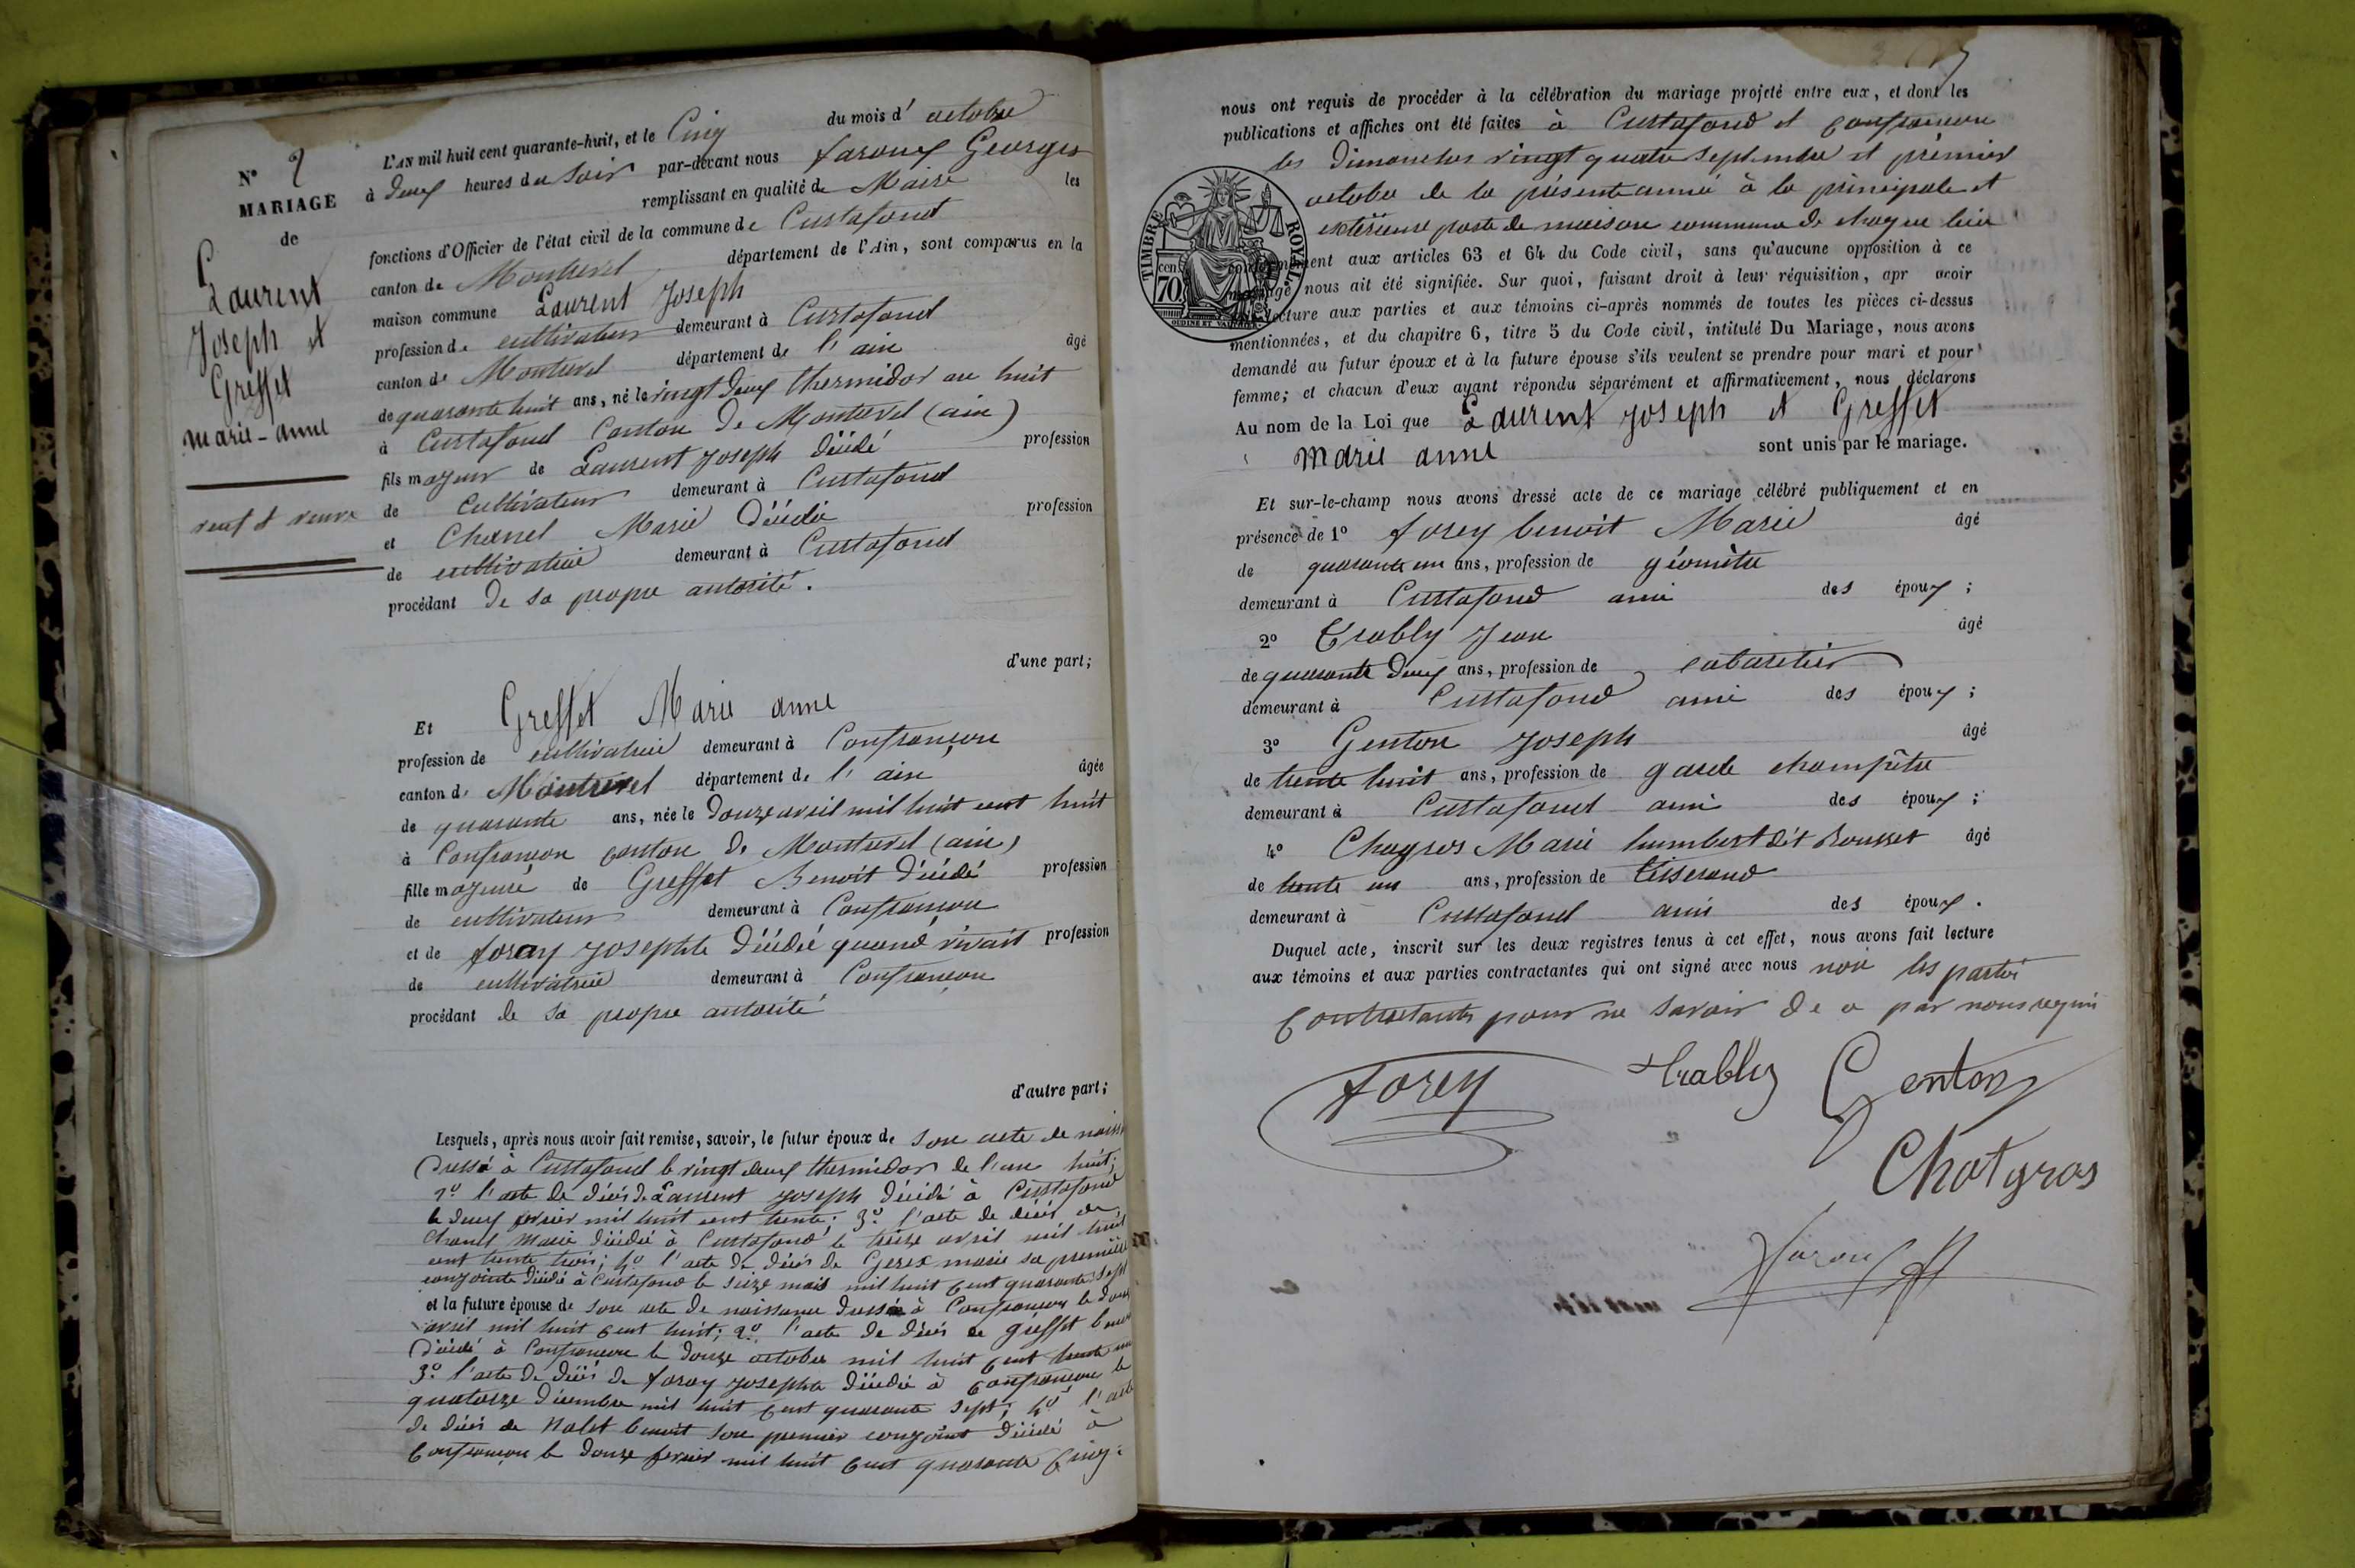 N° 2
MARIAGE
de
Laurent
Joseph et
Greffet
marie-anne
veuf et veuve
L'AN mil huit cent quarante-huit, et le Cinq du mois d' octobre
à deux heures du soir par-devant nous faroux Georges
remplissant en qualité de Maire les
fonctions d'Officier de l'état civil de la commune de Curtafond
canton de Montrevel département de l'Ain, sont comparus en la
maison commune Laurent Joseph
profession de cultivateur demeurant à Curtafond
canton de Montrevel département de l' ain âgé
de quarante huit ans, né le vingt deux thermidor an huit
à Curtafond Canton de Montrevel (ain)
fils majeur de Laurent Joseph décédé profession
de Cultivateur demeurant à Curtafond
et Chanel Marie décédée profession
de cultivatrice demeurant à Curtafond
procédant de sa propre autorité.
d'une part;
Et Greffet Marie anne
profession de cultivatrice demeurant à Confrançon
canton de Montrevel département de l' ain âgée
de quarante ans, née le douze avril mil huit cent huit
à Confrançon canton de Montrevel (ain)
fille majeure de Greffet Benoit décédé profession
de cultivateur demeurant à Confrançon
et de foray Josephte décédée quand vivait profession
de cultivatrice demeurant à Confrançon
procédant de sa propre autorité
d'autre part;
Lesquels, après nous avoir fait remise, savoir, le futur époux de son acte de naiss
dressé à Curtafond le vingt deux thermidor de l'an huit;
2° l'acte de décès de Laurent Joseph décédé à Curtafond
le deux fevrier mil huit cent trente; 3° l'acte de décès de
Chanel Marie décédée à Curtafond le treize avril mil huit
cent trente trois; 4° l'acte de décès de Gerex marie sa première
conjointe décédée à Curtafond le seize mars mil huit cent quarante sept
et la future épouse de son acte de naissance dressé à Confrançon le douze
avril mil huit cent huit; 2° l'acte de décès de greffet benoit
décédé à Confrançon le douze octobre mil huit cent trente un
3° l'acte de décès de foray Josephte décédée à Confrançon le
quatorze décembre mil huit cent quarante sept; 4° l'acte
de décès de Nalet benoit son premier conjoint décédé à
Confrançon le douze fevrier mil huit cent quarante Cinq.
nous ont requis de procéder à la célébration du mariage projeté entre eux, et dont les
publications et affiches ont été faites à Curtafond et Confrançon
les dimanches vingt quatre septembre et premier
octobre de la présente année à la principale et
extérieure porte de maison commune de chaque lieu
conformément aux articles 63 et 64 du Code civil, sans qu'aucune opposition à ce
mariage nous ait été signifiée. Sur quoi, faisant droit à leur réquisition, apr avoir
lecture aux parties et aux témoins ci-après nommés de toutes les pièces ci-dessus
mentionnées, et du chapitre 6, titre 5 du Code civil, intitulé Du Mariage, nous avons
demandé au futur époux et à la future épouse s'ils veulent se prendre pour mari et pour
femme; et chacun d'eux ayant répondu séparément et affirmativement, nous déclarons
Au nom de la Loi que Laurent Joseph et Greffet
Marie anne sont unis par le mariage.
TIMBRE ROYAL
cen. 70
Et sur-le-champ nous avons dressé acte de ce mariage célébré publiquement et en
présence de 1° forey benoit Marie âgé
de quarante un ans, profession de géomètre
demeurant à Curtafond ami des époux;
2° Trably Jean âgé
de quarante deux ans, profession de cabaretier
demeurant à Curtafond ami des époux;
3° Genton Joseph âgé
de trente huit ans, profession de garde champêtre
demeurant à Curtafond ami des époux;
4° Chagros Marie humbert dit Rousset âgé
de trente un ans, profession de tisserand
demeurant à Curtafond amis des époux.
Duquel acte, inscrit sur les deux registres tenus à cet effet, nous avons fait lecture
aux témoins et aux parties contractantes qui ont signé avec nous non les parties
Contractantes pour ne savoir de ce par nous requis
Forey Trably Genton
Chatgros
Faroux